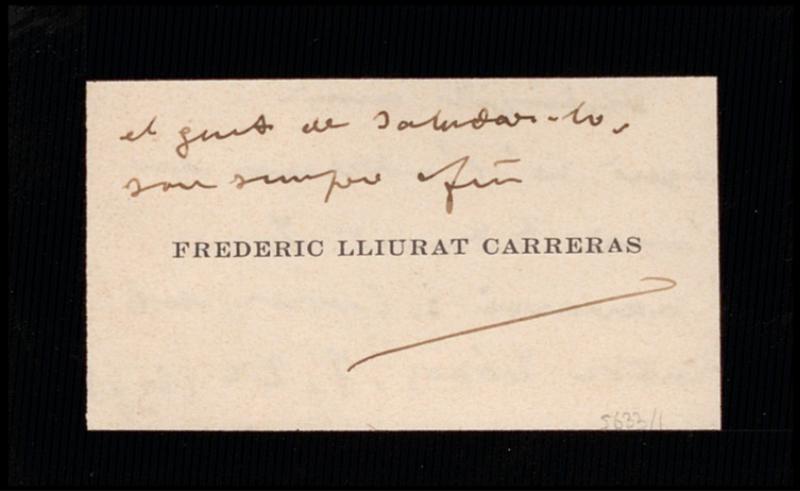 el gust de saludar-lo,
son sempre afm
FREDERIC LLIURAT CARRERAS
5633/1